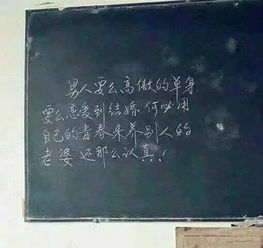 男人要么高傲的单身
要么恋爱到结婚.何必用
自己的青春来养别人的
老婆 还那么认真！